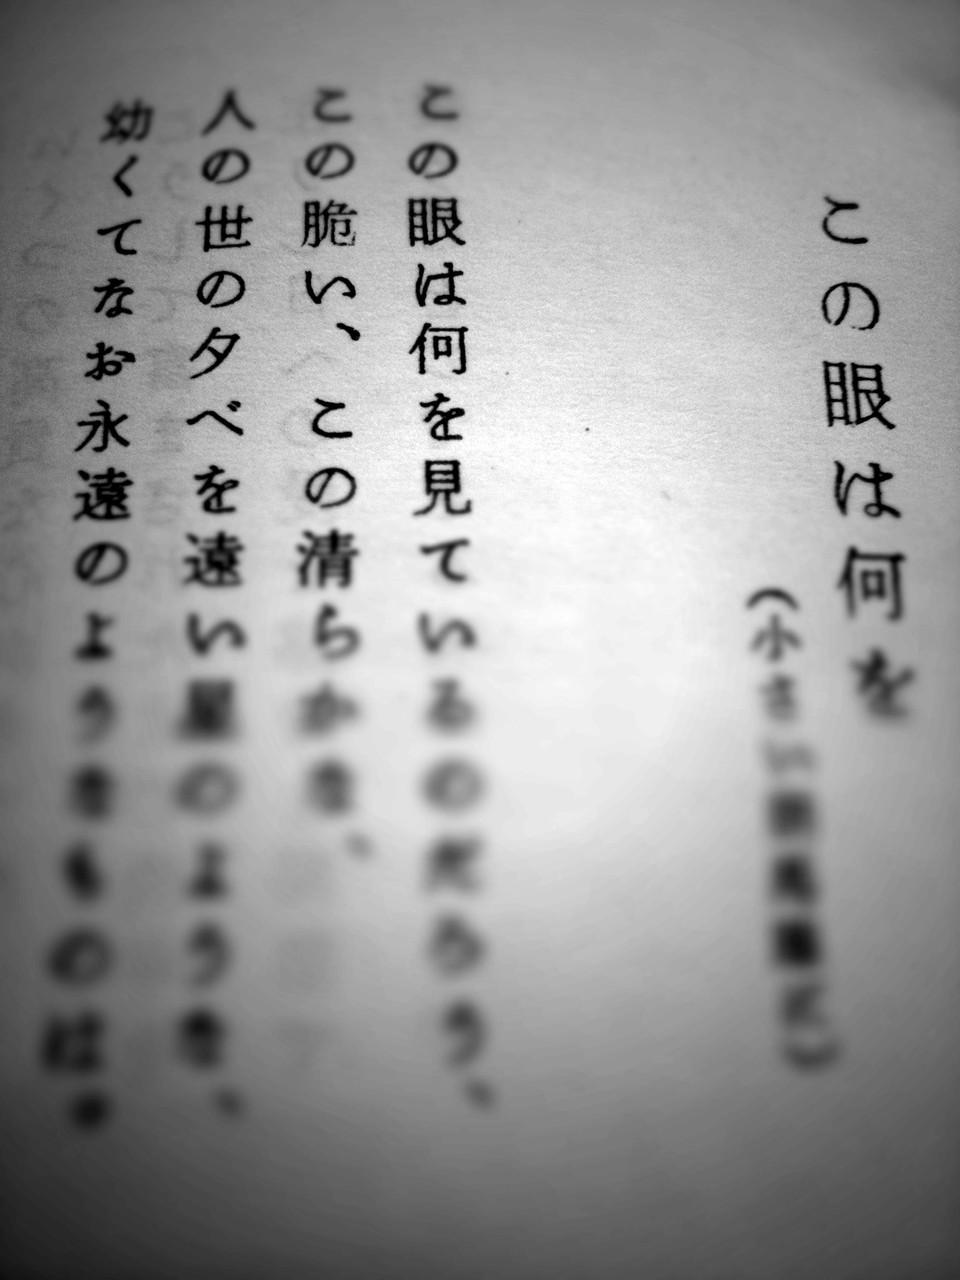 この眼は何を
(小さい
この眼は何を見ているのだろう、
この脆い、この清らかな、
人の世の夕べを遠い星のような、
幼くてなお永遠のようなものは。